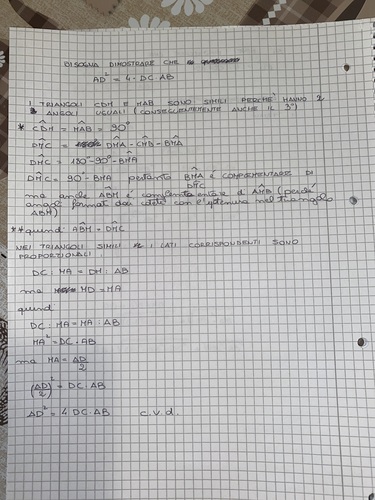 BISOGNA DIMOSTRARE CHE
AD² = 4 · DC AB
I TRIANGOLI CDM E MAB SONO SIMILI PERCHÉ HANNO 2
ANGOLI UGUALI (CONSEGUENTEMENTE ANCHE IL 3°)
* CD̂M = MÂB = 90°
DM̂C = DM̂A - CM̂B - BM̂A
DM̂C = 180° - 90° - BM̂A
DM̂C = 90° - BMA pertanto BM̂A è COMPLEMENTARE DI
DM̂C
ma anche AB̂M è complementare d AM̂B (perché
angoli formati dai cateti con l'ipotenusa nel triangolo
ABM)
** quindi AB̂M = DM̂C
NEI TRIANGOLI SIMILI I LATI CORRISPONDENTI SONO
PROPORZIONALI
DC : MA = DM : AB
ma MD = MA
quindi
DC : MA = MA : AB
MA² = DC · AB
ma MA = AD/2
(AD/2)² = DC · AB
AD² = 4 DC · AB c.v.d.